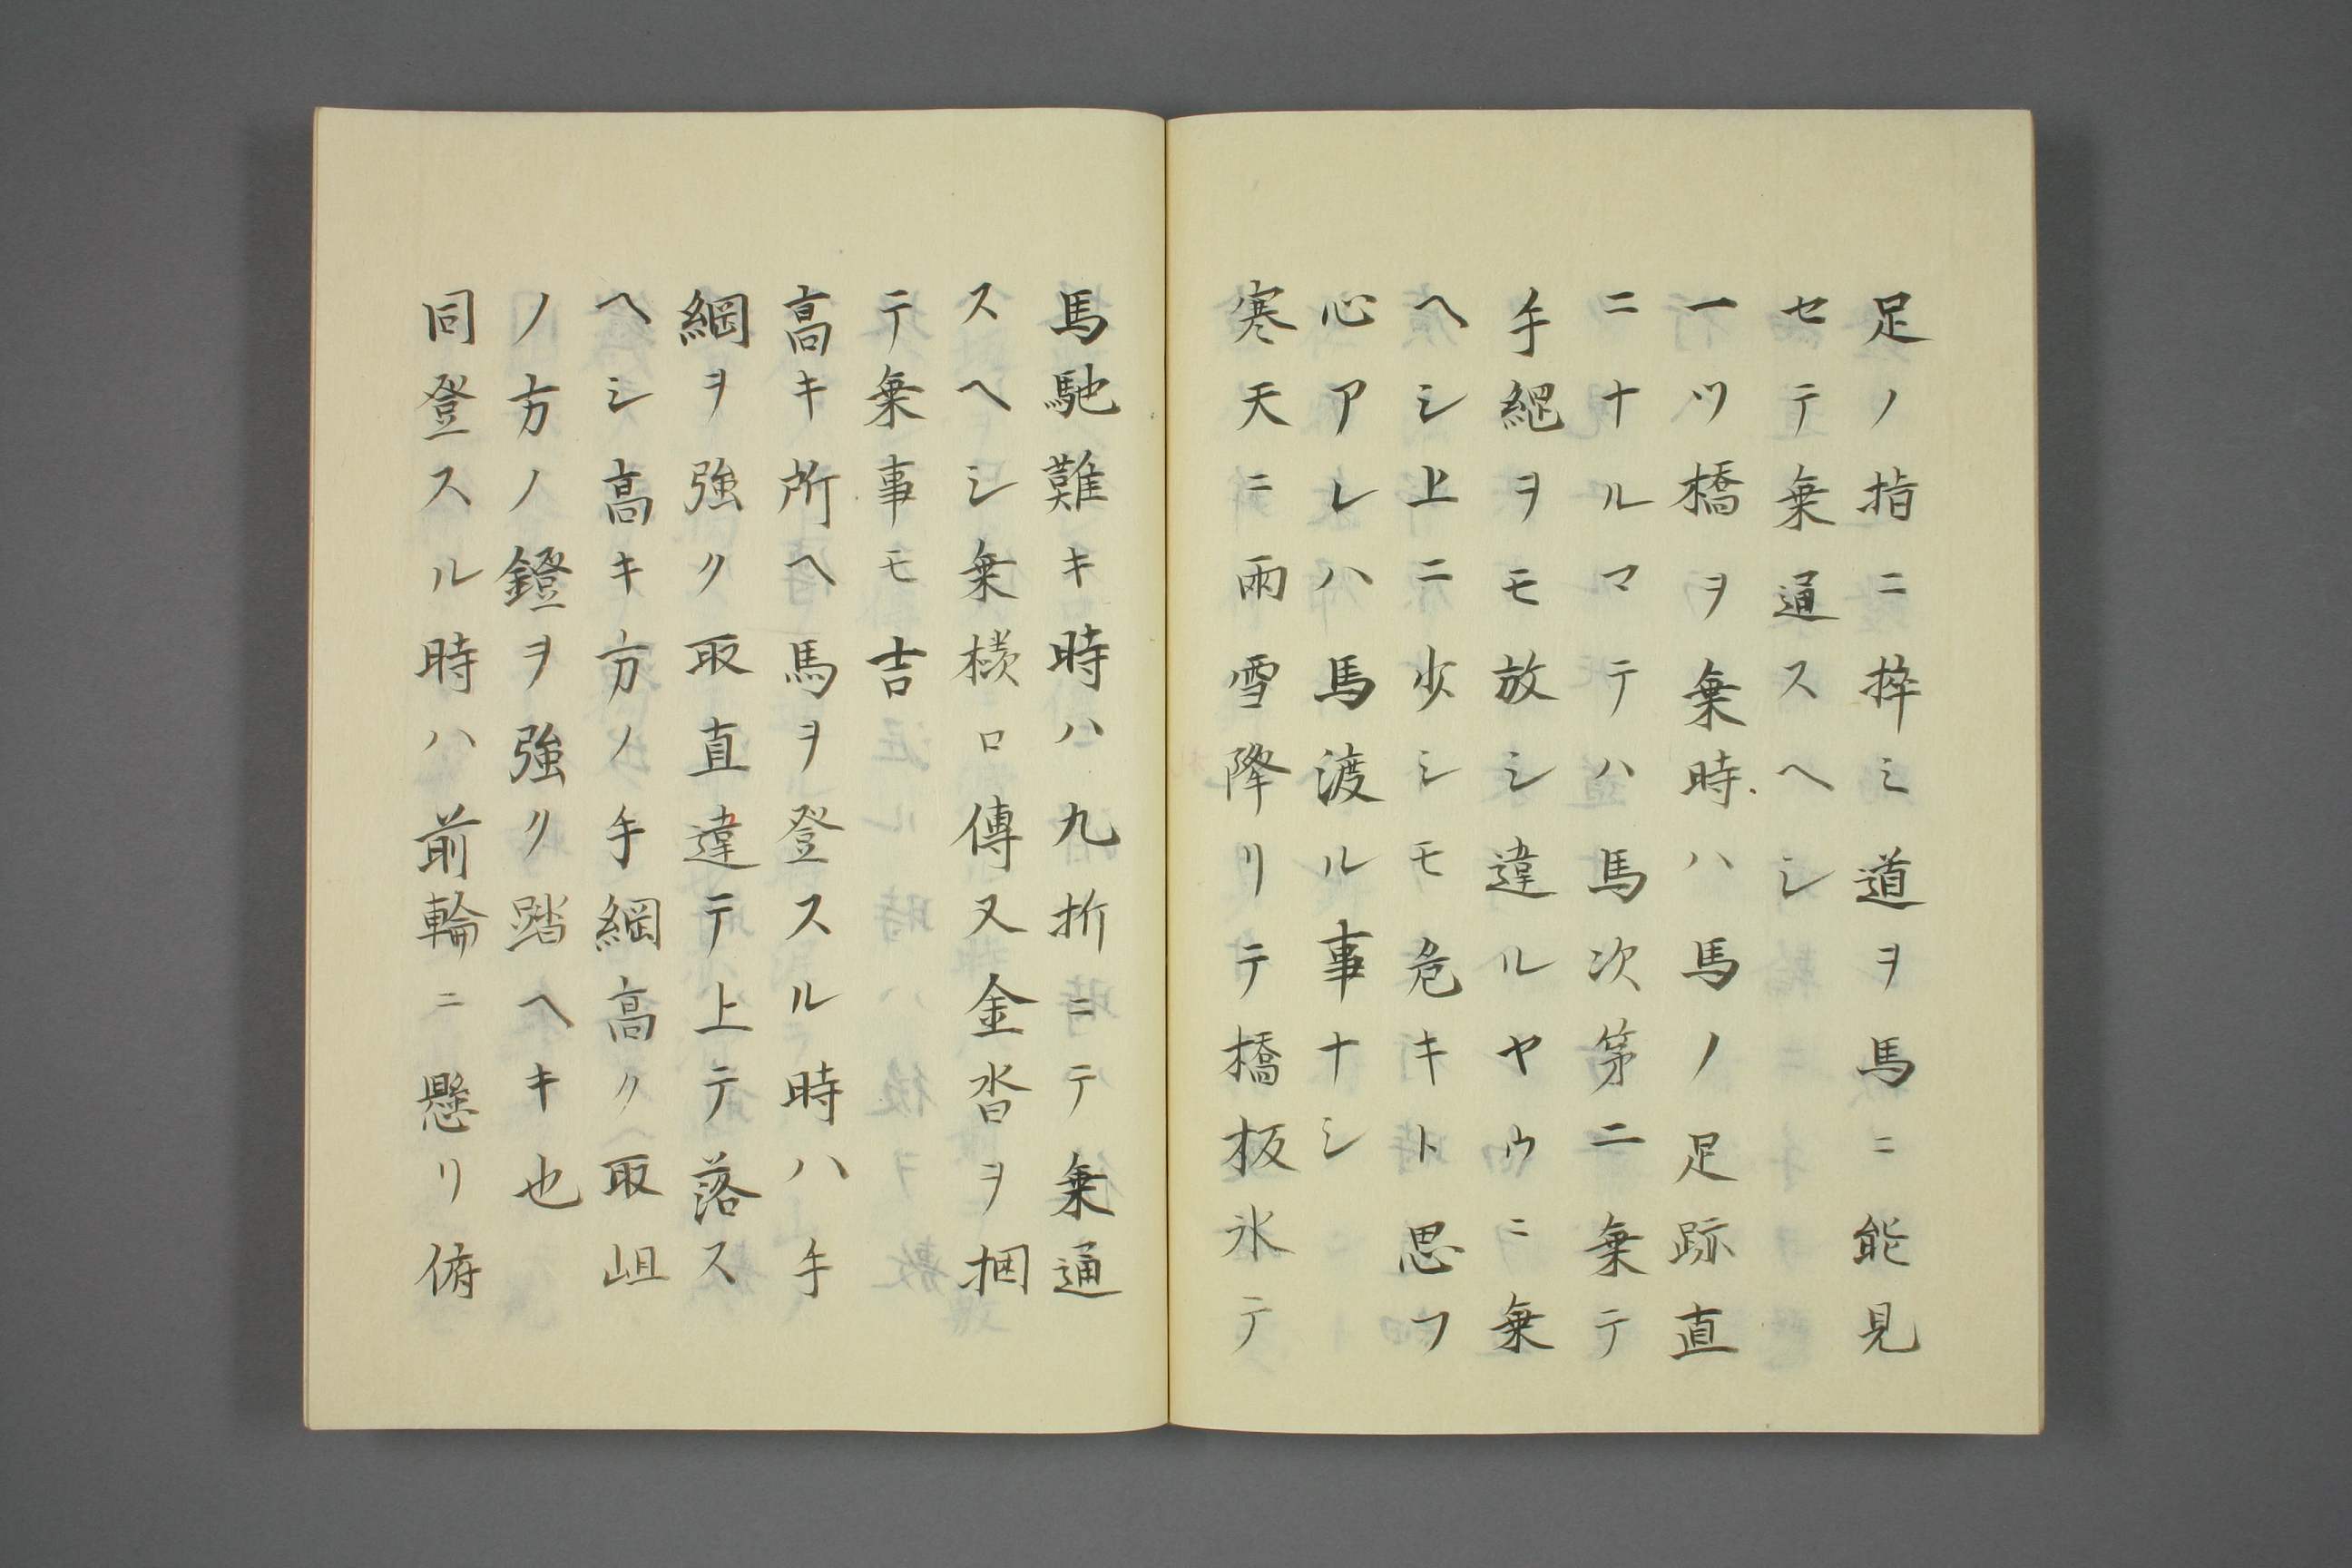 足ノ指ニ捽ミ道ヲ馬ニ能見
セテ乗通スヘシ
一ツ橋ヲ乗時ハ馬ノ足跡直
ニナルマテハ馬次第ニ乗テ
手綱ヲモ放シ違ルヤウニ乗
ヘシ上ニ少シモ危キト思フ
心アレハ馬渡ル事ナシ
寒天ニ雨雪降リテ橋板氷テ
馬馳難キ時ハ九折ニテ乗通
スヘシ乗様口傳又金沓ヲ掴
テ乗事モ吉
高キ所ヘ馬ヲ登スル時ハ手
綱ヲ強ク取直違テ上テ落ス
ヘシ高キ方ノ手綱高ク取岨
ノ方ノ鐙ヲ強ク踏ヘキ也
同登スル時ハ前輪ニ懸リ俯